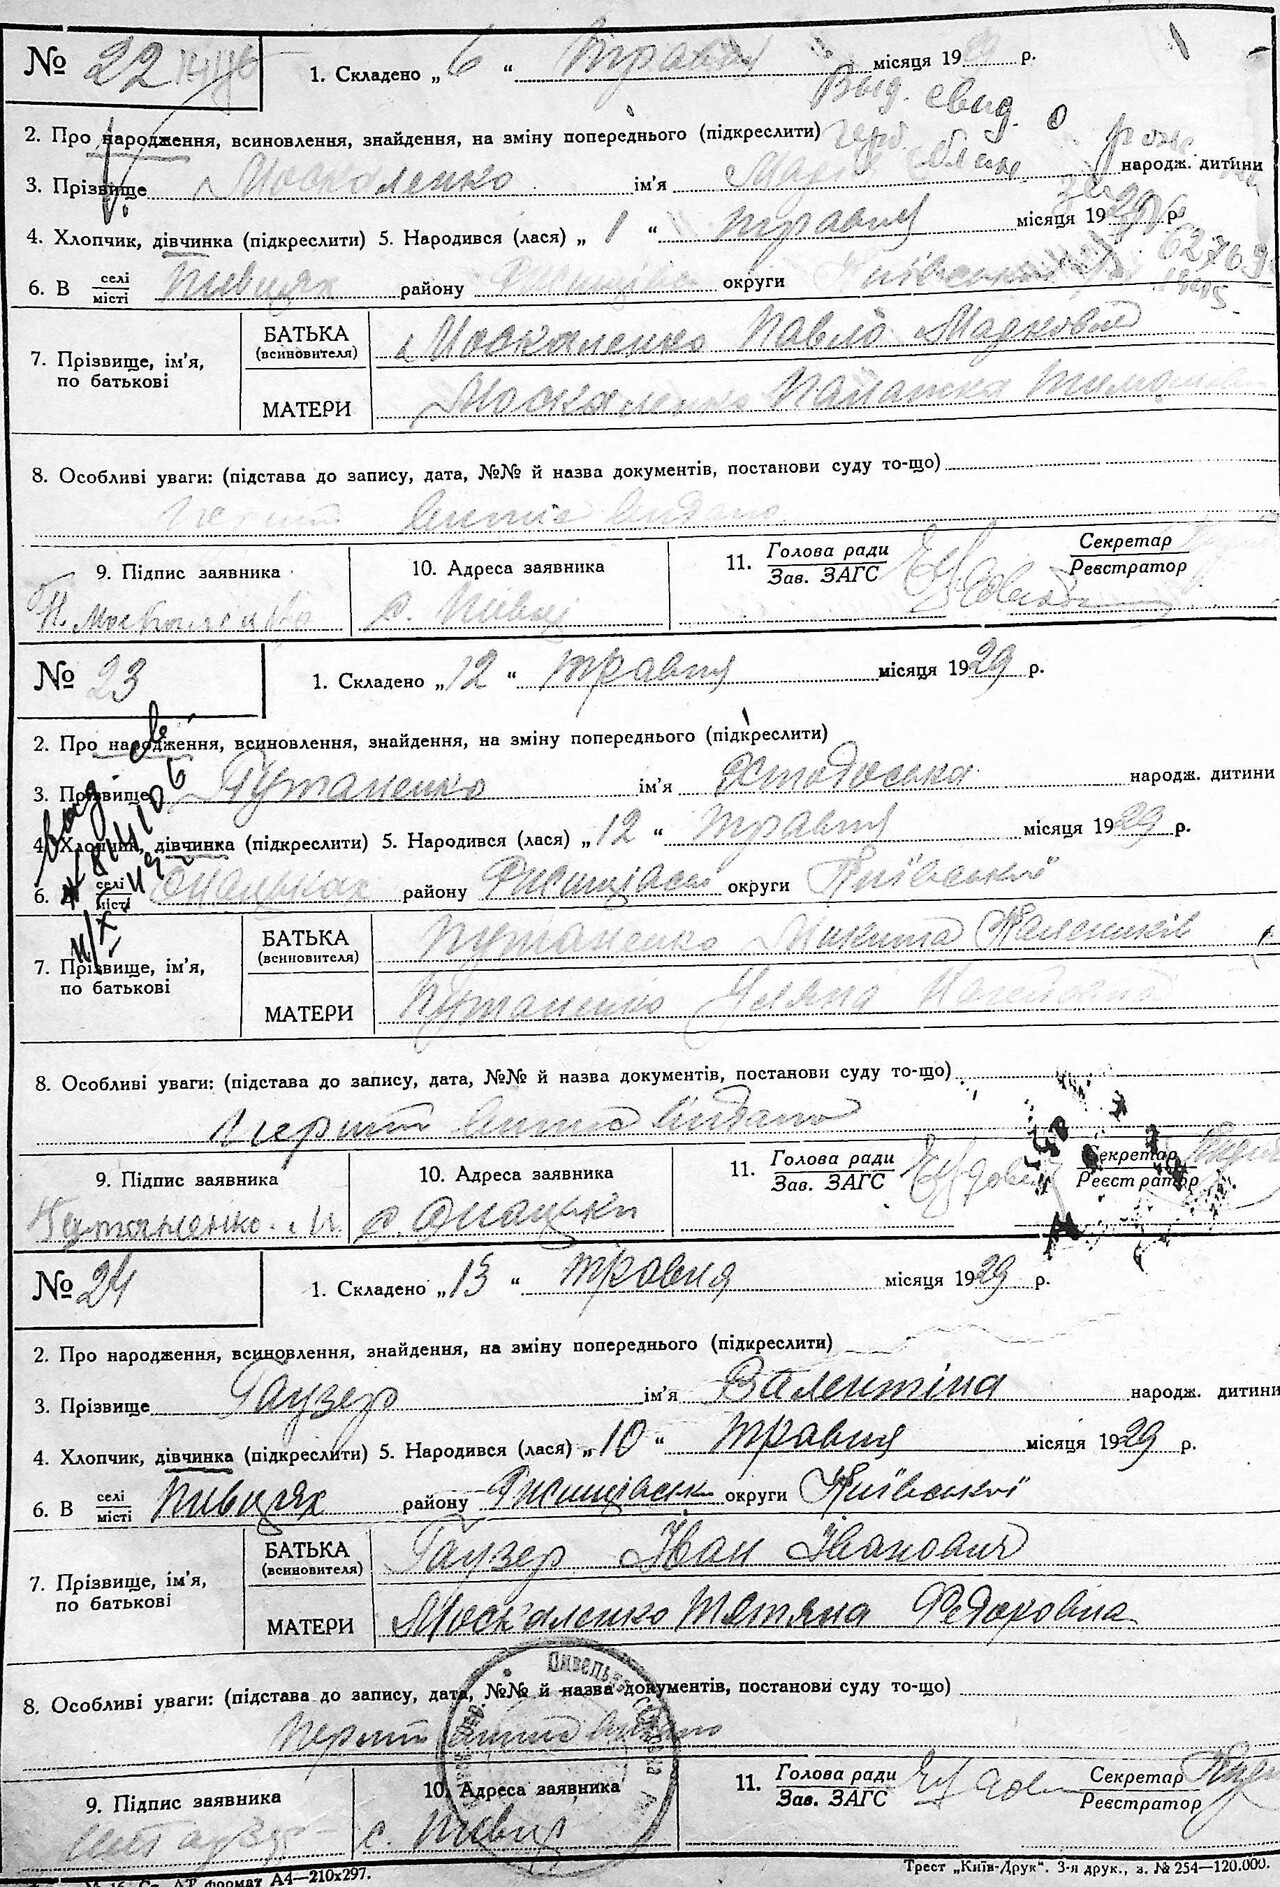 № 22
1. Складено „ 6 “ Травня місяця 1929 р.
Выд. свид. о рожд.
2. Про народження, всиновлення, знайдення, на зміну попереднього (підкреслити)
3. Прізвище Москаленко ім'я Марія народж. дитини
4. Хлопчик, дівчинка (підкреслити) 5. Народився (лася) „ 1 “ травня місяця 1929 р.
6. В селі/місті Пивцях району округи Київської
7. Прізвище, ім'я, по батькові
БАТЬКА (всиновителя) Москаленко Павло Маркович
МАТЕРИ Москаленко Палажка
8. Особливі уваги: (підстава до запису, дата, №№ й назва документів, постанови суду то-що)
видано
9. Підпис заявника
10. Адреса заявника
11. Голова ради / Зав. ЗАГС
Секретар / Реєстратор
П. Москаленко
с. Пивці
№ 23
1. Складено „ 12 “ травня місяця 1929 р.
2. Про народження, всиновлення, знайдення, на зміну попереднього (підкреслити)
3. Прізвище Путаненко ім'я народж. дитини
4. Хлопчик, дівчинка (підкреслити) 5. Народився (лася) „ 12 “ травня місяця 1929 р.
6. В селі/місті Онацьках району округи Київської
7. Прізвище, ім'я, по батькові
БАТЬКА (всиновителя) Путаненко Микита
МАТЕРИ Путаненко Уляна
8. Особливі уваги: (підстава до запису, дата, №№ й назва документів, постанови суду то-що)
видано
9. Підпис заявника
10. Адреса заявника
11. Голова ради / Зав. ЗАГС
Секретар / Реєстратор
Путаненко М.
с. Онацьки
№ 24
1. Складено „ 13 “ травня місяця 1929 р.
2. Про народження, всиновлення, знайдення, на зміну попереднього (підкреслити)
3. Прізвище Гаузер ім'я Валентіна народж. дитини
4. Хлопчик, дівчинка (підкреслити) 5. Народився (лася) „ 10 “ травня місяця 1929 р.
6. В селі/місті Пивцях району округи Київської
7. Прізвище, ім'я, по батькові
БАТЬКА (всиновителя) Гаузер Іван Іванович
МАТЕРИ Москаленко Тетяна Федоровна
8. Особливі уваги: (підстава до запису, дата, №№ й назва документів, постанови суду то-що)
видано
9. Підпис заявника
10. Адреса заявника
11. Голова ради / Зав. ЗАГС
Секретар / Реєстратор
с. Пивці
формат А4—210х297.
Трест „Київ-Друк“. 3-я друк., з. № 254—120.000.